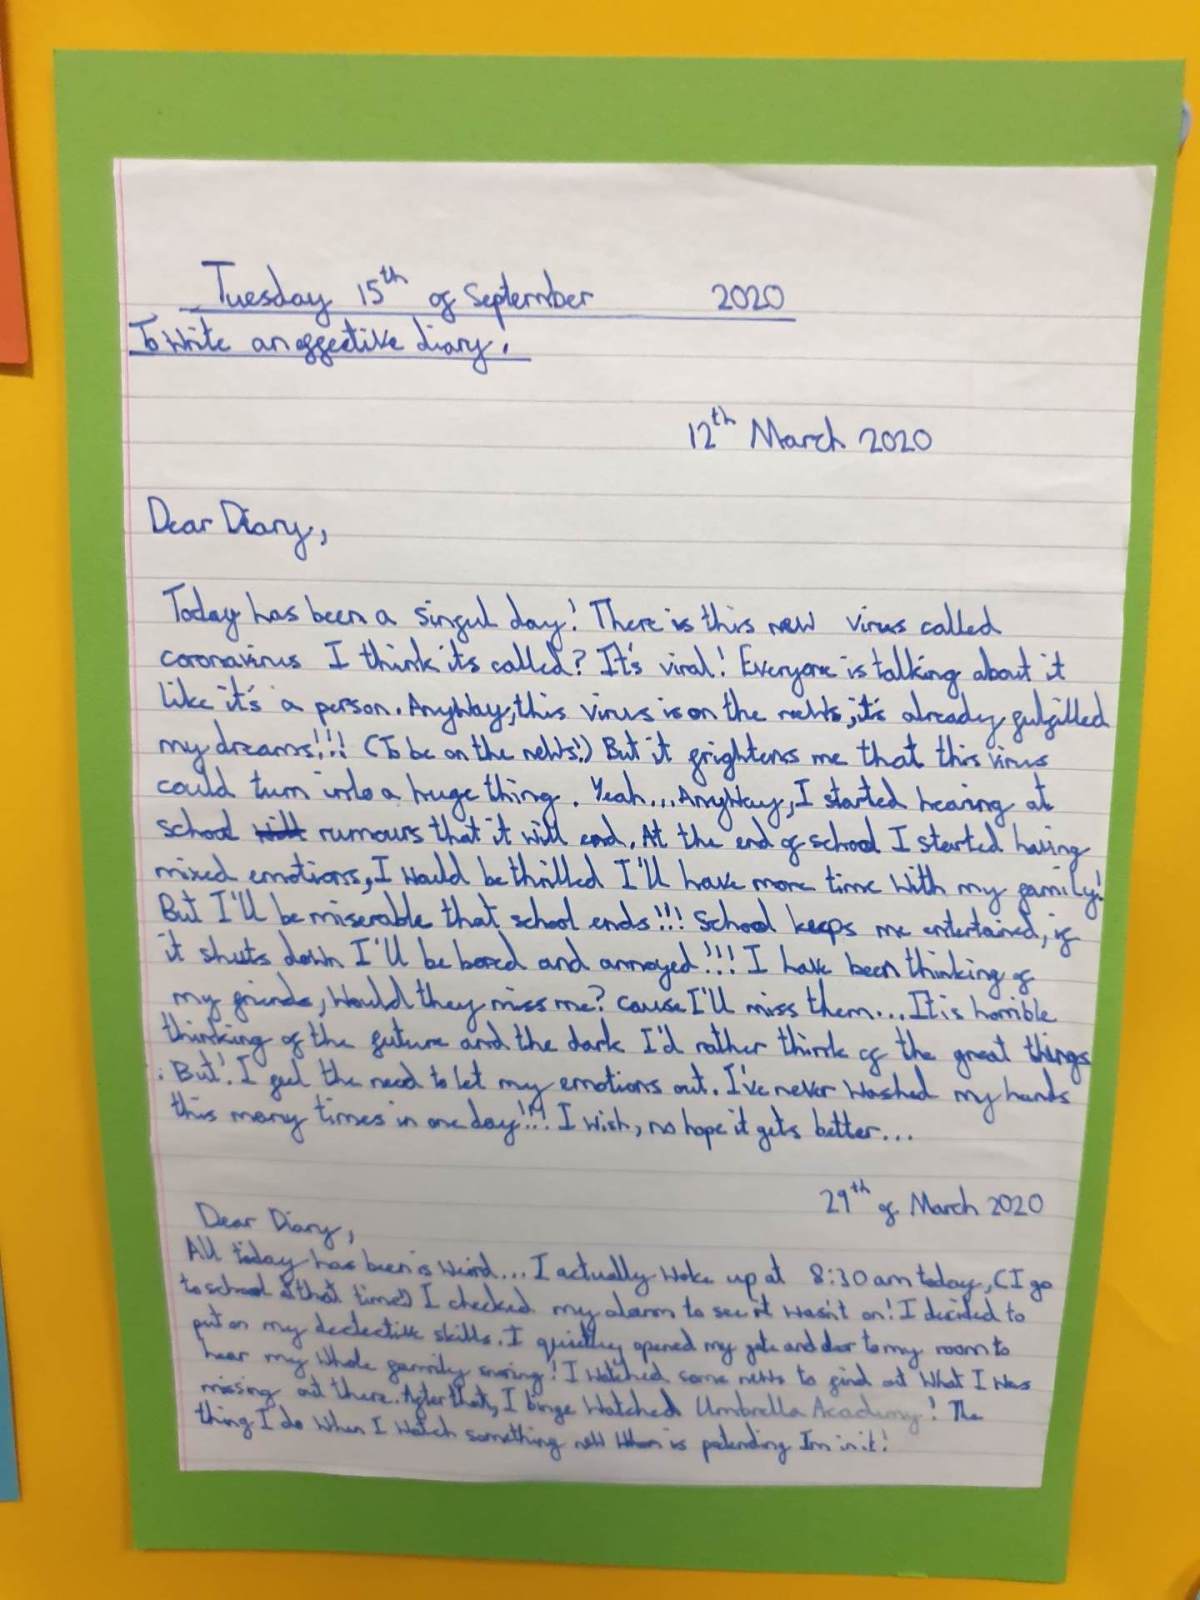 Tuesday 15th of September 2020
To write an effective diary.
12th March 2020
Dear Diary,
Today has been a singul day! There is this new virus called
coronavirus I think its called? It's viral! Everyone is talking about it
like it's a person. Anyway, this virus is on the news, it's already fulfilled
my dreams!!! (To be on the news!) But it frightens me that this virus
could turn into a huge thing. Yeah... Anyway, I started hearing at
school rumours that it will end. At the end of school I started having
mixed emotions, I would be thrilled I'll have more time with my family!
But I'll be miserable that school ends!!! School keeps me entertained, if
it shuts down I'll be bored and annoyed!!! I have been thinking of
my friends, would they miss me? cause I'll miss them... It is horrible
thinking of the future and the dark I'd rather think of the great things
. But! I feel the need to let my emotions out. I've never washed my hands
this many times in one day!!! I wish, no hope it gets better...
29th of March 2020
Dear Diary,
All today has been is weird... I actually woke up at 8:30 am today, (I go
to school at that time) I checked my alarm to see it wasn't on! I decided to
put on my dectective skills. I quietley opened my gate and door to my room to
hear my whole family snoring! I watched some news to find out what I was
missing out there. After that, I binge watched Umbrella Academy! The
thing I do when I watch something new is pretending Im in it!